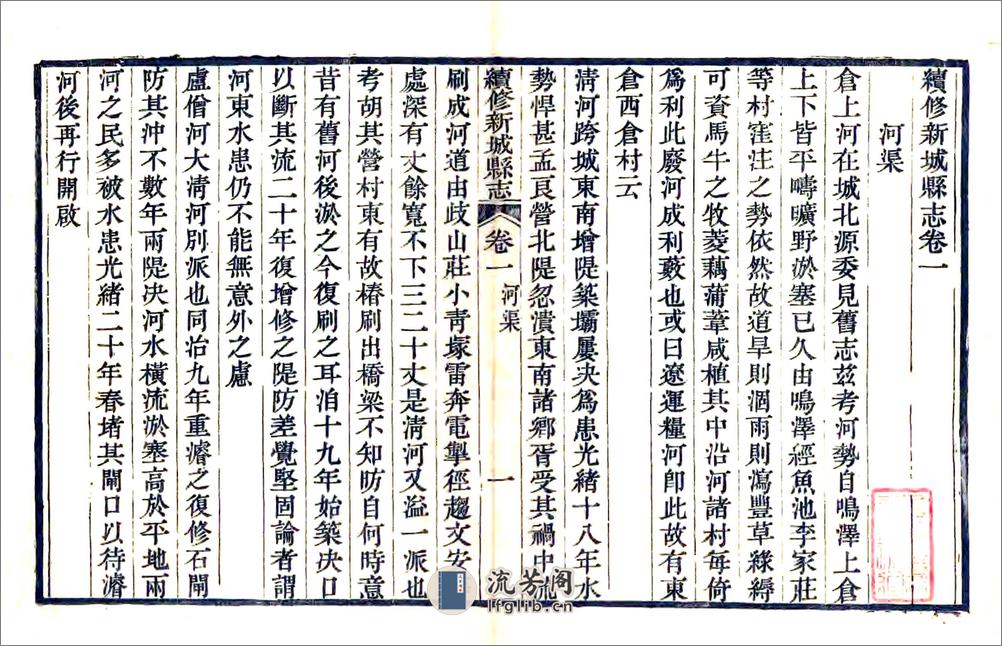 續修新城縣志卷一
河渠
倉上河在城北源委見舊志茲考河勢自鳴澤上倉
上下皆平疇曠野淤塞已久由鳴澤經魚池李家莊
等村窪注之勢依然故道旱則涸雨則瀉豐草綠縟
可資馬牛之牧菱藕蒲葦咸植其中沿河諸村每倚
爲利此廢河成利藪也或曰遼運糧河卽此故有東
倉西倉村云
清河跨城東南增隄築壩屢決爲患光緒十八年水
勢悍甚孟良營北隄忽潰東南諸鄉胥受其禍中流
續修新城縣志
卷一
河渠
一
刷成河道由歧山莊小青塚雷奔電掣徑趨文安
處深有丈餘寬不下三二十丈是清河又溢一派也
考胡其營村東有故樁刷出橋梁不知昉自何時意
昔有舊河後淤之今復刷之耳洎十九年始築決口
以斷其流二十年復增修之隄防差覺堅固論者謂
河東水患仍不能無意外之慮
盧僧河大清河別派也同治九年重濬之復修石閘
防其沖不數年兩隄決河水橫流淤塞高於平地兩
河之民多被水患光緒二十年春堵其閘口以待濬
河後再行開啟
流芳阁
lfglib.cn